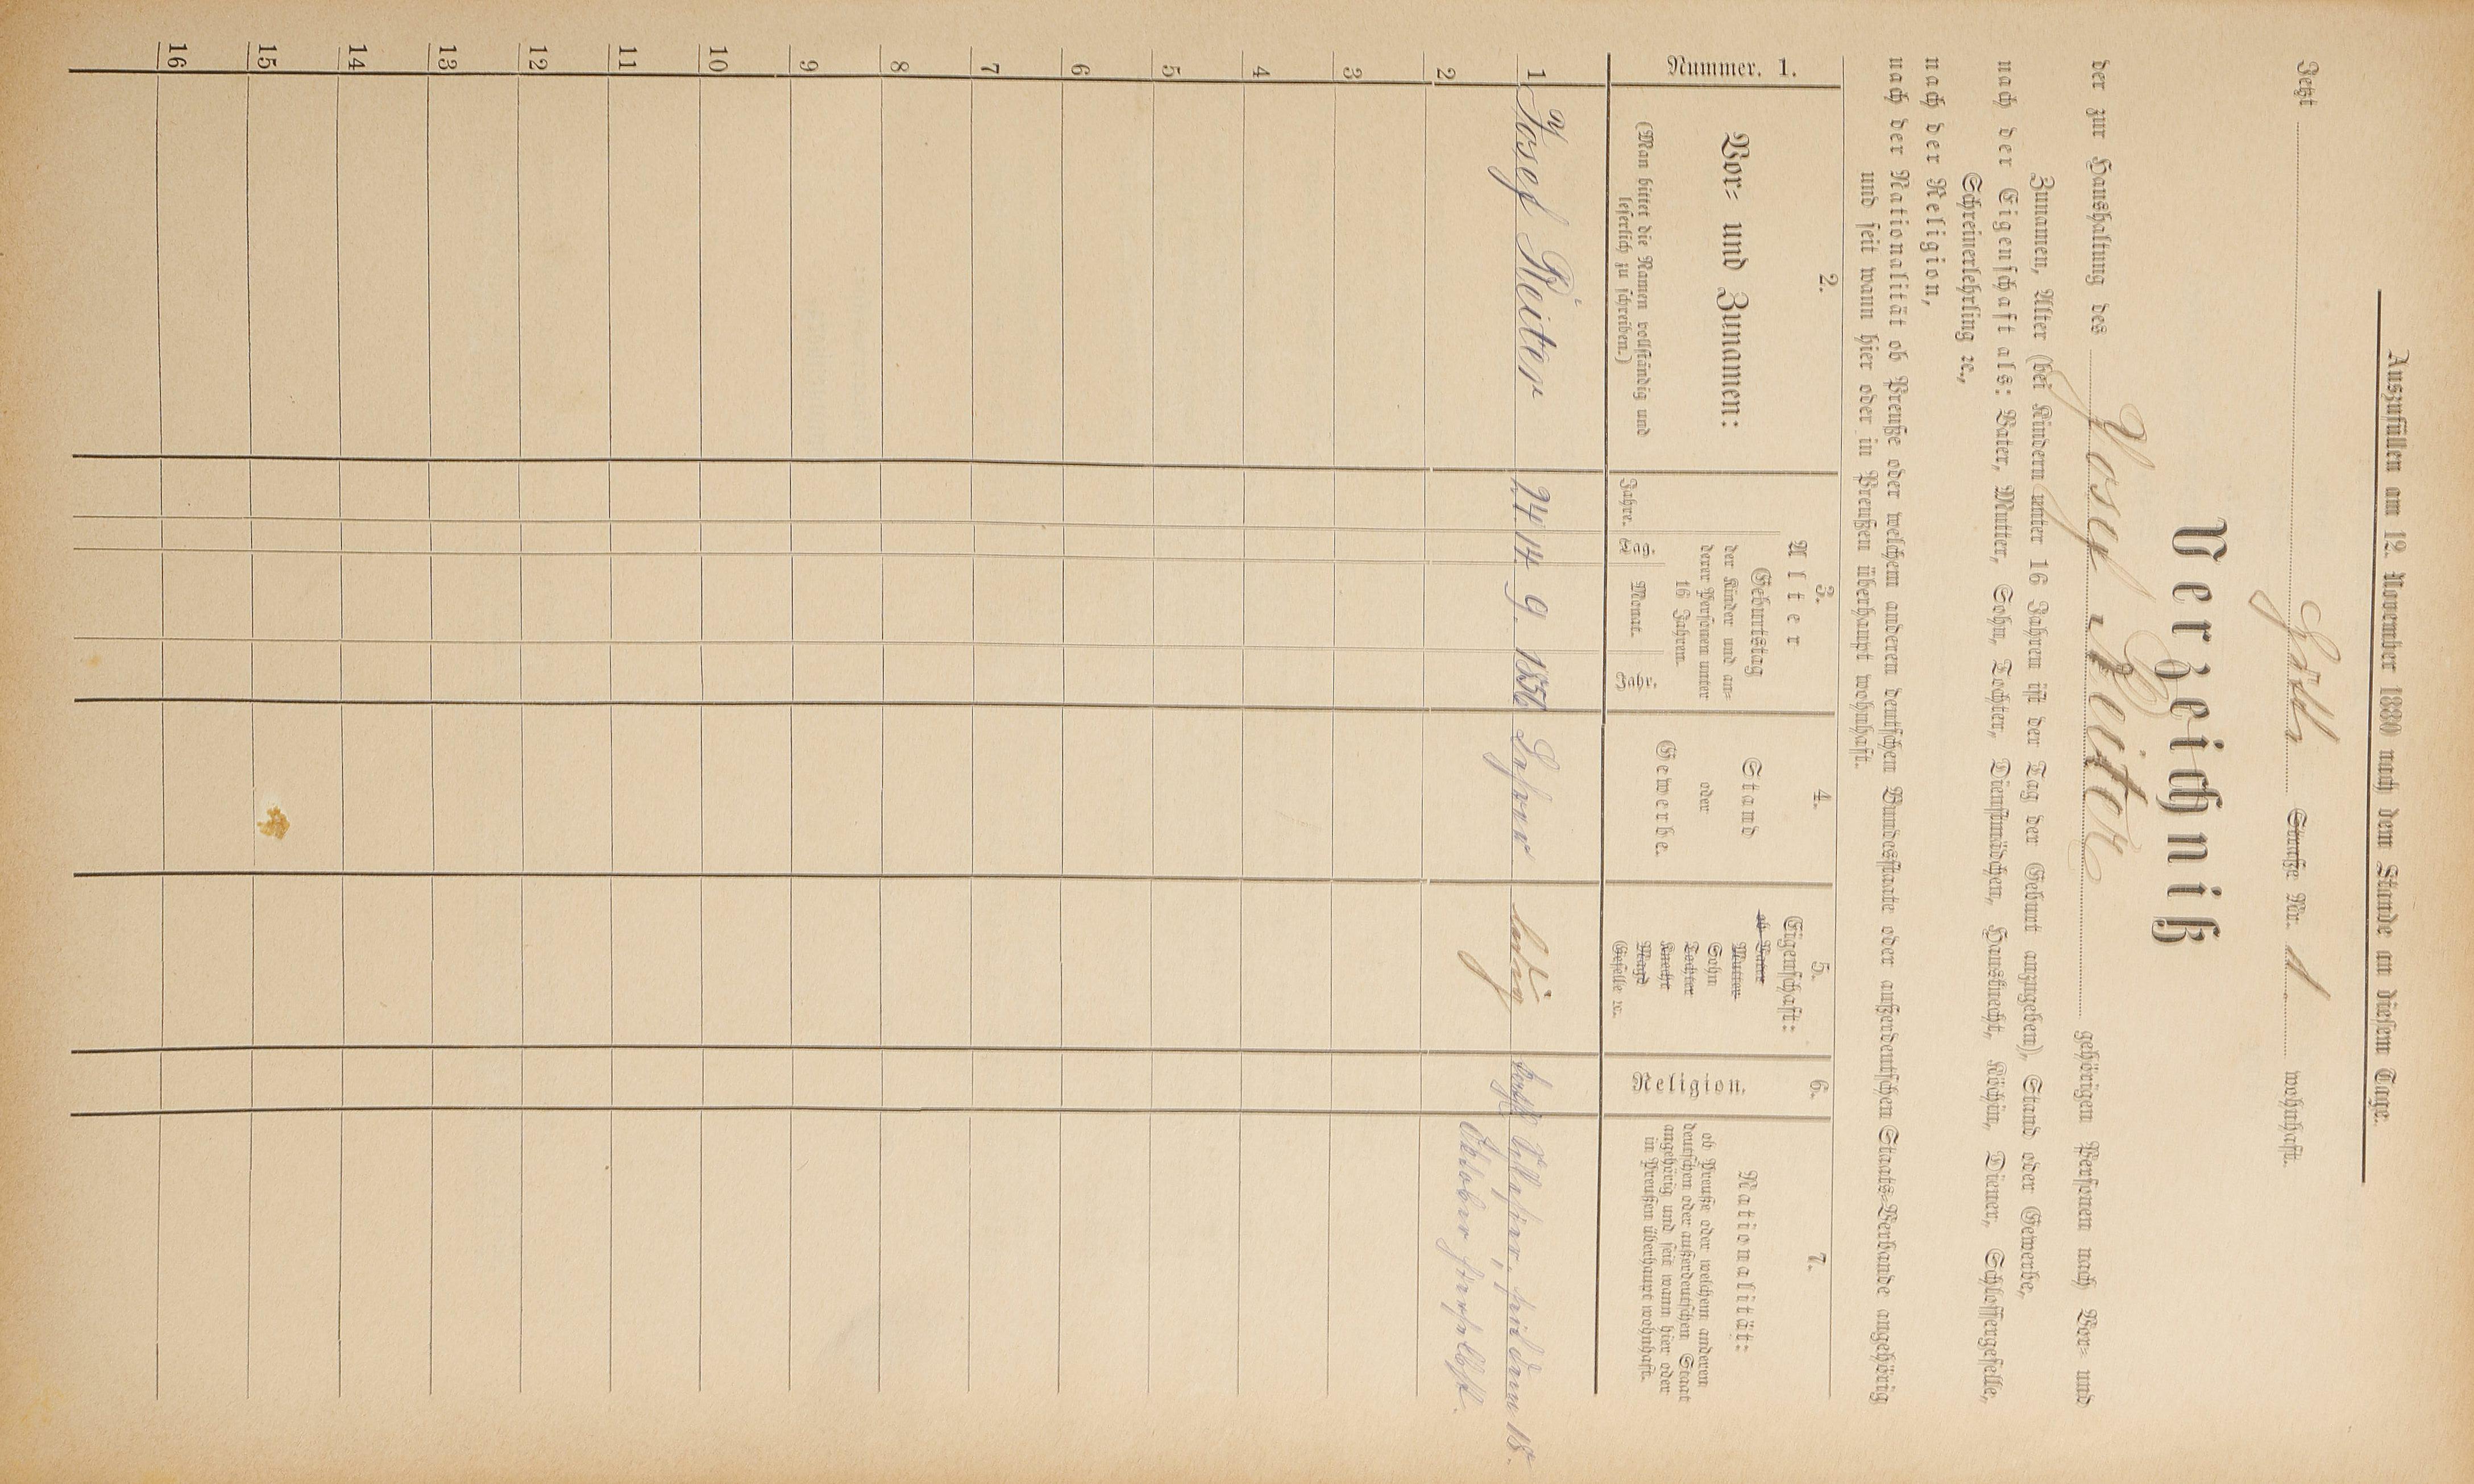 Auszufüllen am 12. November 1880 nach dem Stande an diesem Tage.
Jetzt Straße Nr. 1 wohnhaft.
Verzeichniß
der zur Haushaltung des Josef Reiter gehörigen Personen nach Vor- und
Zunamen, Alter (bei Kindern unter 16 Jahren ist der Tag der Geburt anzugeben), Stand oder Gewerbe,
nach der Eigenschaft als: Vater, Mutter, Sohn, Tochter, Dienstmädchen, Hausknecht, Köchin, Diener, Schlossergeselle,
Schreinerlehrling ꝛc.,
nach der Religion,
nach der Nationalität ob Preuße oder welchem anderen deutschen Bundesstaate oder außerdeutschen Staats-Verbande angehörig
und seit wann hier oder in Preußen überhaupt wohnhaft.
Nummer. 1.
2.
Vor- und Zunamen:
(Man bittet die Namen vollständig und
leserlich zu schreiben.)
3.
Alter
Geburtstag
der Kinder und an-
derer Personen unter
16 Jahren.
Jahre.
Tag
Monat.
Jahr
4.
Stand
oder
Gewerbe.
5.
Eigenschaft:
ob Vater
Mutter
Sohn
Tochter
Knecht
Magd
Geselle ꝛc.
6.
Religion.
7.
Nationalität:
ob Preuße oder welchem anderen
deutschen oder außerdeutschen Staat
angehörig und seit wann hier oder
in Preußen überhaupt wohnhaft.
1 Josef Reiter 24 14. 9. 1856 Lehrer ledig kath. seit dem 18.
Oktober hierselbst.
2
3
4
5
6
7
8
9
10
11
12
13
14
15
16